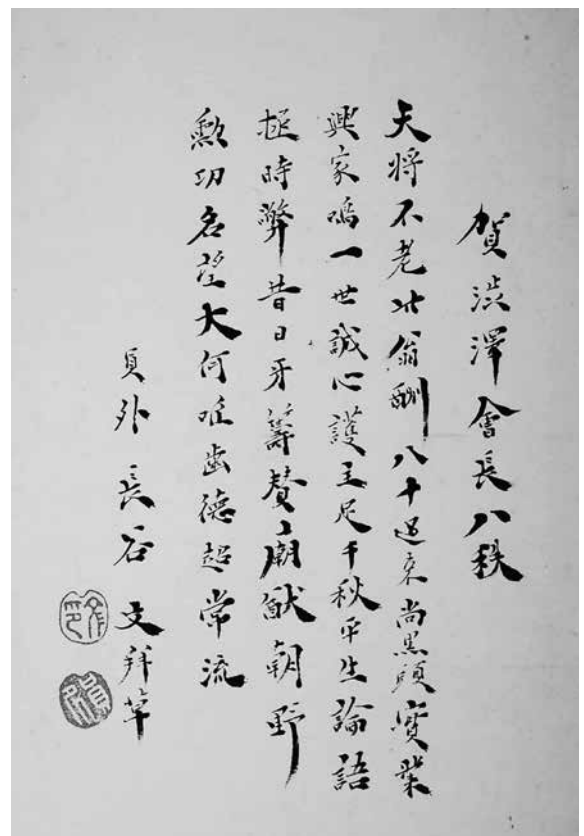 賀渋澤會長八秩
天将不老此翁酬八十過来尚黒頭實業
興家鳴一世誠心護主足千秋平生論語
拯時弊昔日牙籌賛廟猷朝野
勲功名望大何唯歯徳超常流
員外長谷文拜草